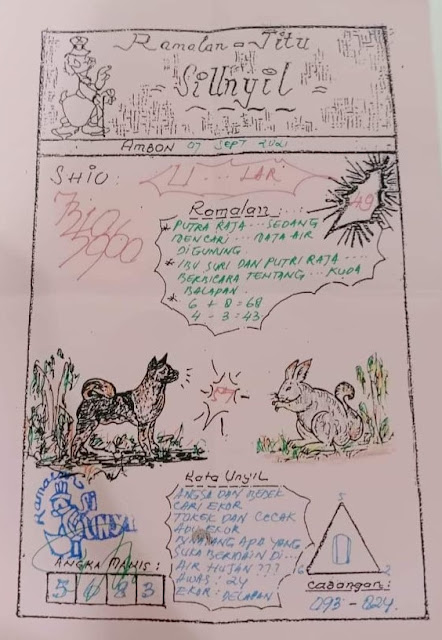 Ramalan-Jitu
"Si Unyil"
AMBON 07 SEPT 2021
SHIO: U....LAR
49
Ramalan:
* PUTRA RAJA... SEDANG
MENCARI... MATA AIR
DI GUNUNG
* IBU SURI DAN PUTRI RAJA...
BERBICARA TENTANG... KUDA
BALAPAN.
* 6 + 8 = 68
4 - 3 = 43
57
Ramalan Si
UNYIL
Kata Unyil
ANGSA DAN BEBEK
CARI EKOR
TOKEK DAN CECAK
ADU EKOR
BINATANG APA YANG
SUKA BERMAIN DI...
AIR HUJAN???
AWAS: 24
EKOR: DELAPAN
ANGKA MANIS:
5 6 8 3
5
6 2
Cadangan:
093 - 024.